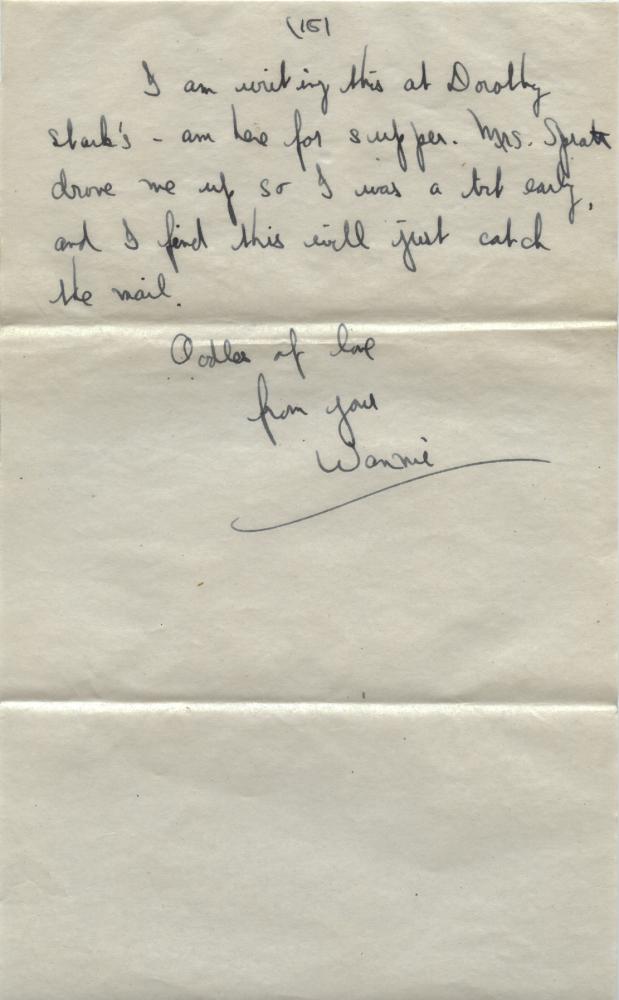 (15)
I am writing this at Dorothy
Stark's - am here for supper. Mrs. Spratt
drove me up so I was a bit early,
and I find this will just catch
the mail.
Oodles of love
from your
Wannie